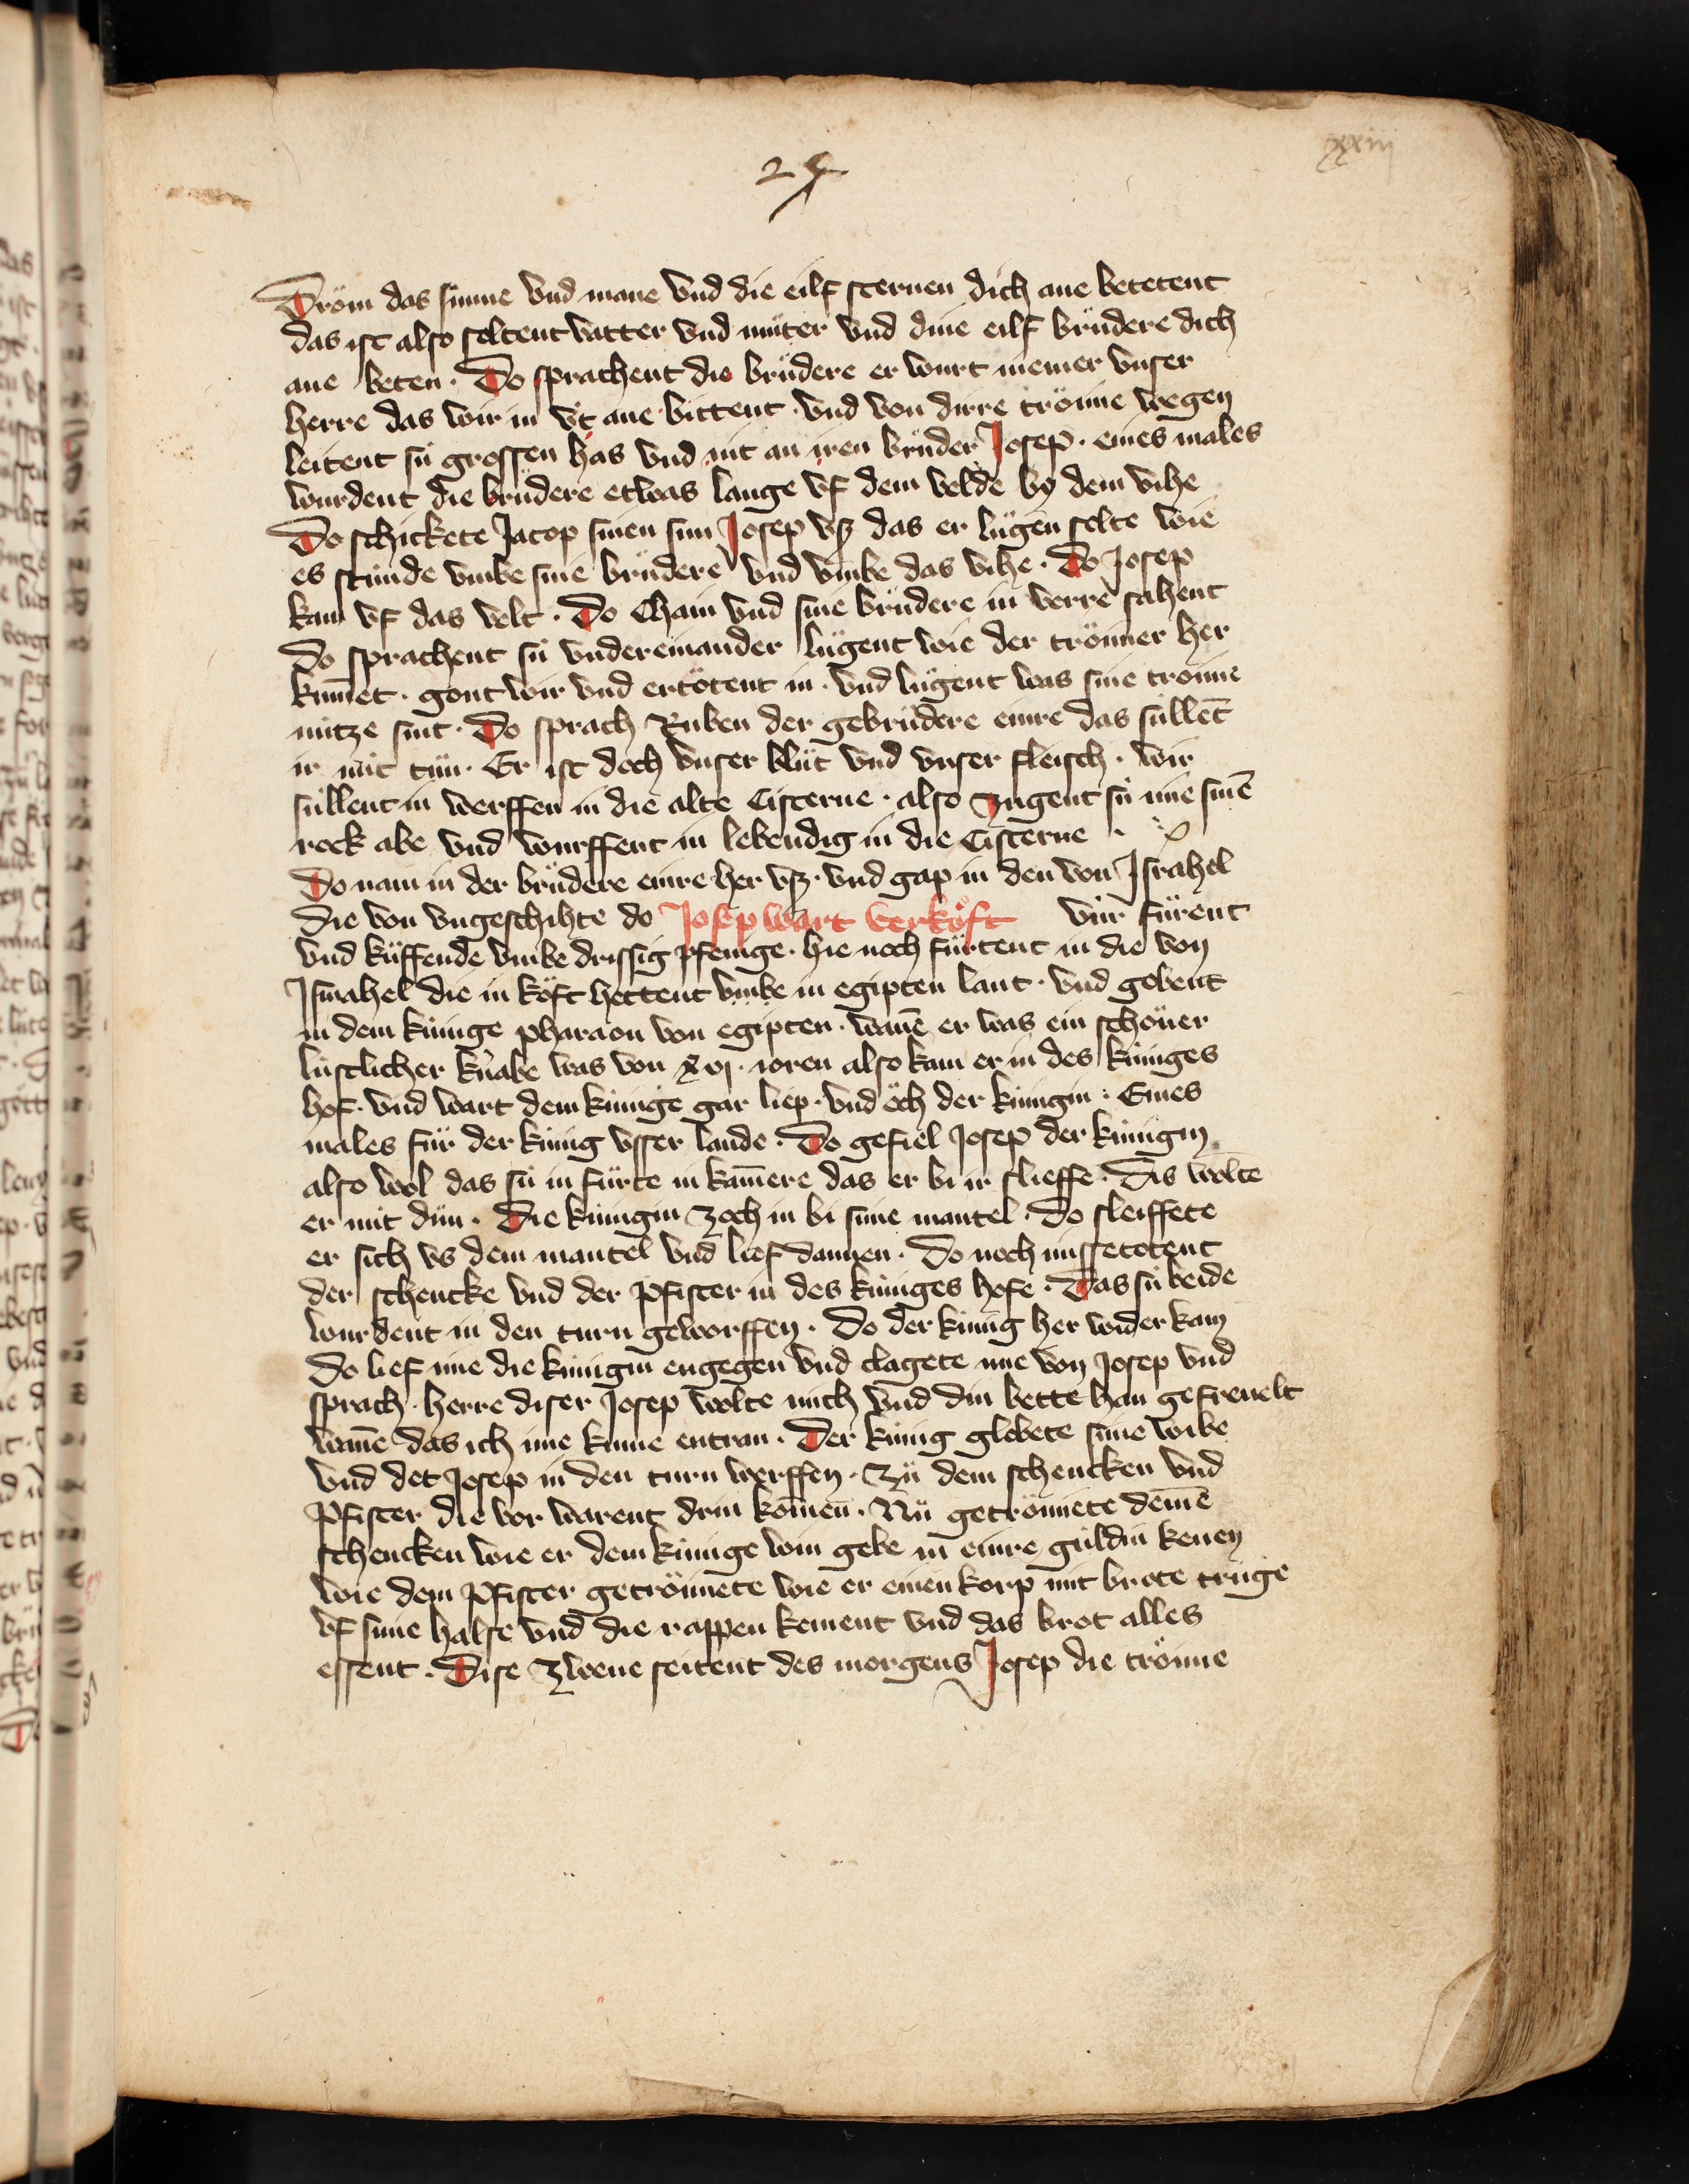 xxiiij
24
Dröm das sunne vnd mane vnd die eilf sternen dich ane betetent
das ist also soltent vatter vnd muͤter vnd dine eilf bruͤdere dich
ane beten · Do sprachent die bruͤdere er wurt niemer vnser
herre das wir in vt ane bittent · vnd von dirre tröme wegen
leitent sü grossen has vnd nit an iren bruͤder Josep · eines males
wurdent die bruͤdere etwas lange vf dem velde by dem vihe
Do schickete Jacop sinen sun Josep vß das er luͤgen solte wie
es stuͤnde vmbe sine bruͤdere vnd vmbe das vihe · Do Josep
kam vf das velt · Do Cham vnd sine bruͤdere in verre sahent
Do sprachent sü vndereinander luͤgent wie der trömer her
kum̄et · gont wir vnd ertötent in · vnd luͤgent was sine tröme
nütze sint · Do sprach Ruben der gebruͤdere einre das süllēt
ir nüt tuͤn · Er ist doch vnser bluͤt vnd vnser fleisch · wir
süllent in werffen in die alte Cisterne · also zugent sü ime sinē
rock abe vnd wurffent in lebendig in die Cisterne ·
Do nam in der bruͤdere einre her vß · vnd gap in den von Israhel
die von vngeschihte do Josep wart verköft vür fuͤrent
vnd küffende vmbe drissig pfenige · hie noch fuͤrtent in die von
Ismahel die in köft hettent vmbe in egipten lant · vnd gobent
in dem künige pharaon von egipten · wanē er was ein schöner
lustlicher knabe was von xvj · ioren also kam er in des küniges
hof · vnd wart dem künige gar liep · vnd öch der künigin · Eines
males fuͤr der künig vsser lande · Do gefiel Josep der künigin
also wol das sü in fuͤrte in kam̄ere das er bi ir slieffe · Dis wolte
er nüt duͤn · Die künigin zoch in bi sime mantel · Do sleiffete
er sich vs dem mantel vnd lief dannen · Do noch missetotent
der schencke vnd der pfister in des küniges hofe · Das sü beide
wurdent in den turn geworffen · Do der künig her wider kam
Do lief ime die künigin engegen vnd clagete ime von Josep vnd
sprach · herre diser Josep wolte mich vnd din bette han gefreuelt
wanē das ich ime kume entran · Der künig globete sime wibe
vnd det Josep in den turn werffen · Zuͤ dem schencken vnd
pfister die vor warent drin komen · Nuͤ getrömete demē
schencken wie er dem künige win gebe in einre guldin kenen
wie dem pfister getrömete wie er einen korp mit brote truͤge
vf sime halse vnd die rappen kement vnd das brot alles
essent · Dise zwene seitent des morgens Josep die tröme